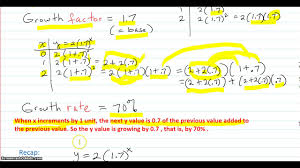 Growth factor = 1.7
(= base)
2 2(1.7)²
x y = 2(1.7)ˣ
0 2(1.7)⁰ = 2
1 2(1+.7)¹ = 2+2(.7)
2 2(1+.7)² = 2(1+.7)(1+.7) = (2+2(.7))(1+.7)
= (2+2(.7)) + (2+2(.7))(.7)
Growth rate = 70%
When x increments by 1 unit, the next y value is 0.7 of the previous value added
to the previous value. So the y value is growing by 0.7 , that is, by 70% .
Recap:
y = 2(1.7)ˣ